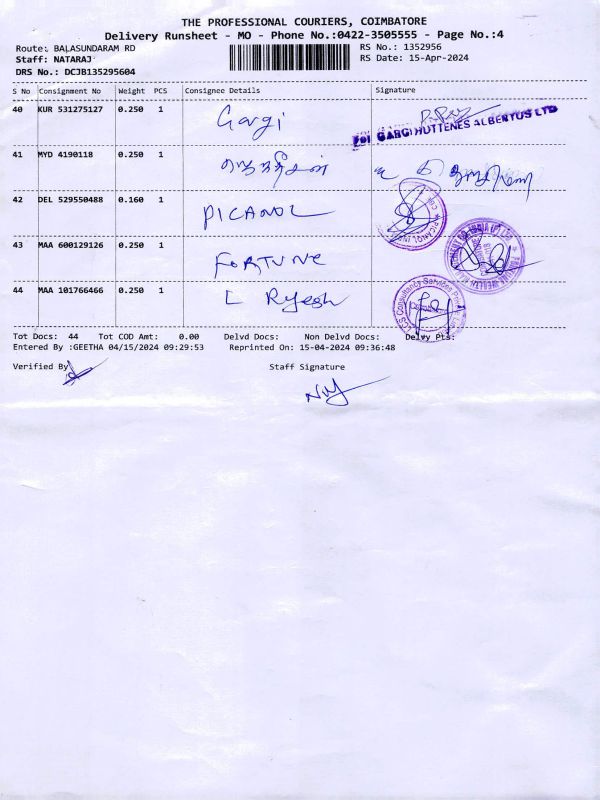 THE PROFESSIONAL COURIERS, COIMBATORE
Delivery Runsheet - MO - Phone No.:0422-3505555 - Page No.:4
Route: BALASUNDARAM RD RS No.: 1352956
Staff: NATARAJ RS Date: 15-Apr-2024
DRS No.: DCJB135295604
S No Consignment No Weight PCS Consignee Details Signature
40 KUR 531275127 0.250 1 Gargi
FOR GARGI HUTTENES ALBERTUS LTD
41 MYD 4190118 0.250 1
42 DEL 529550488 0.160 1 PICANOL
PICANOL
43 MAA 600129126 0.250 1 FORTUNE
44 MAA 101766466 0.250 1 L
LCS Consultancy Services
Tot Docs: 44 Tot COD Amt: 0.00 Delvd Docs: Non Delvd Docs: Delvy Pts:
Entered By :GEETHA 04/15/2024 09:29:53 Reprinted On: 15-04-2024 09:36:48
Verified By Staff Signature